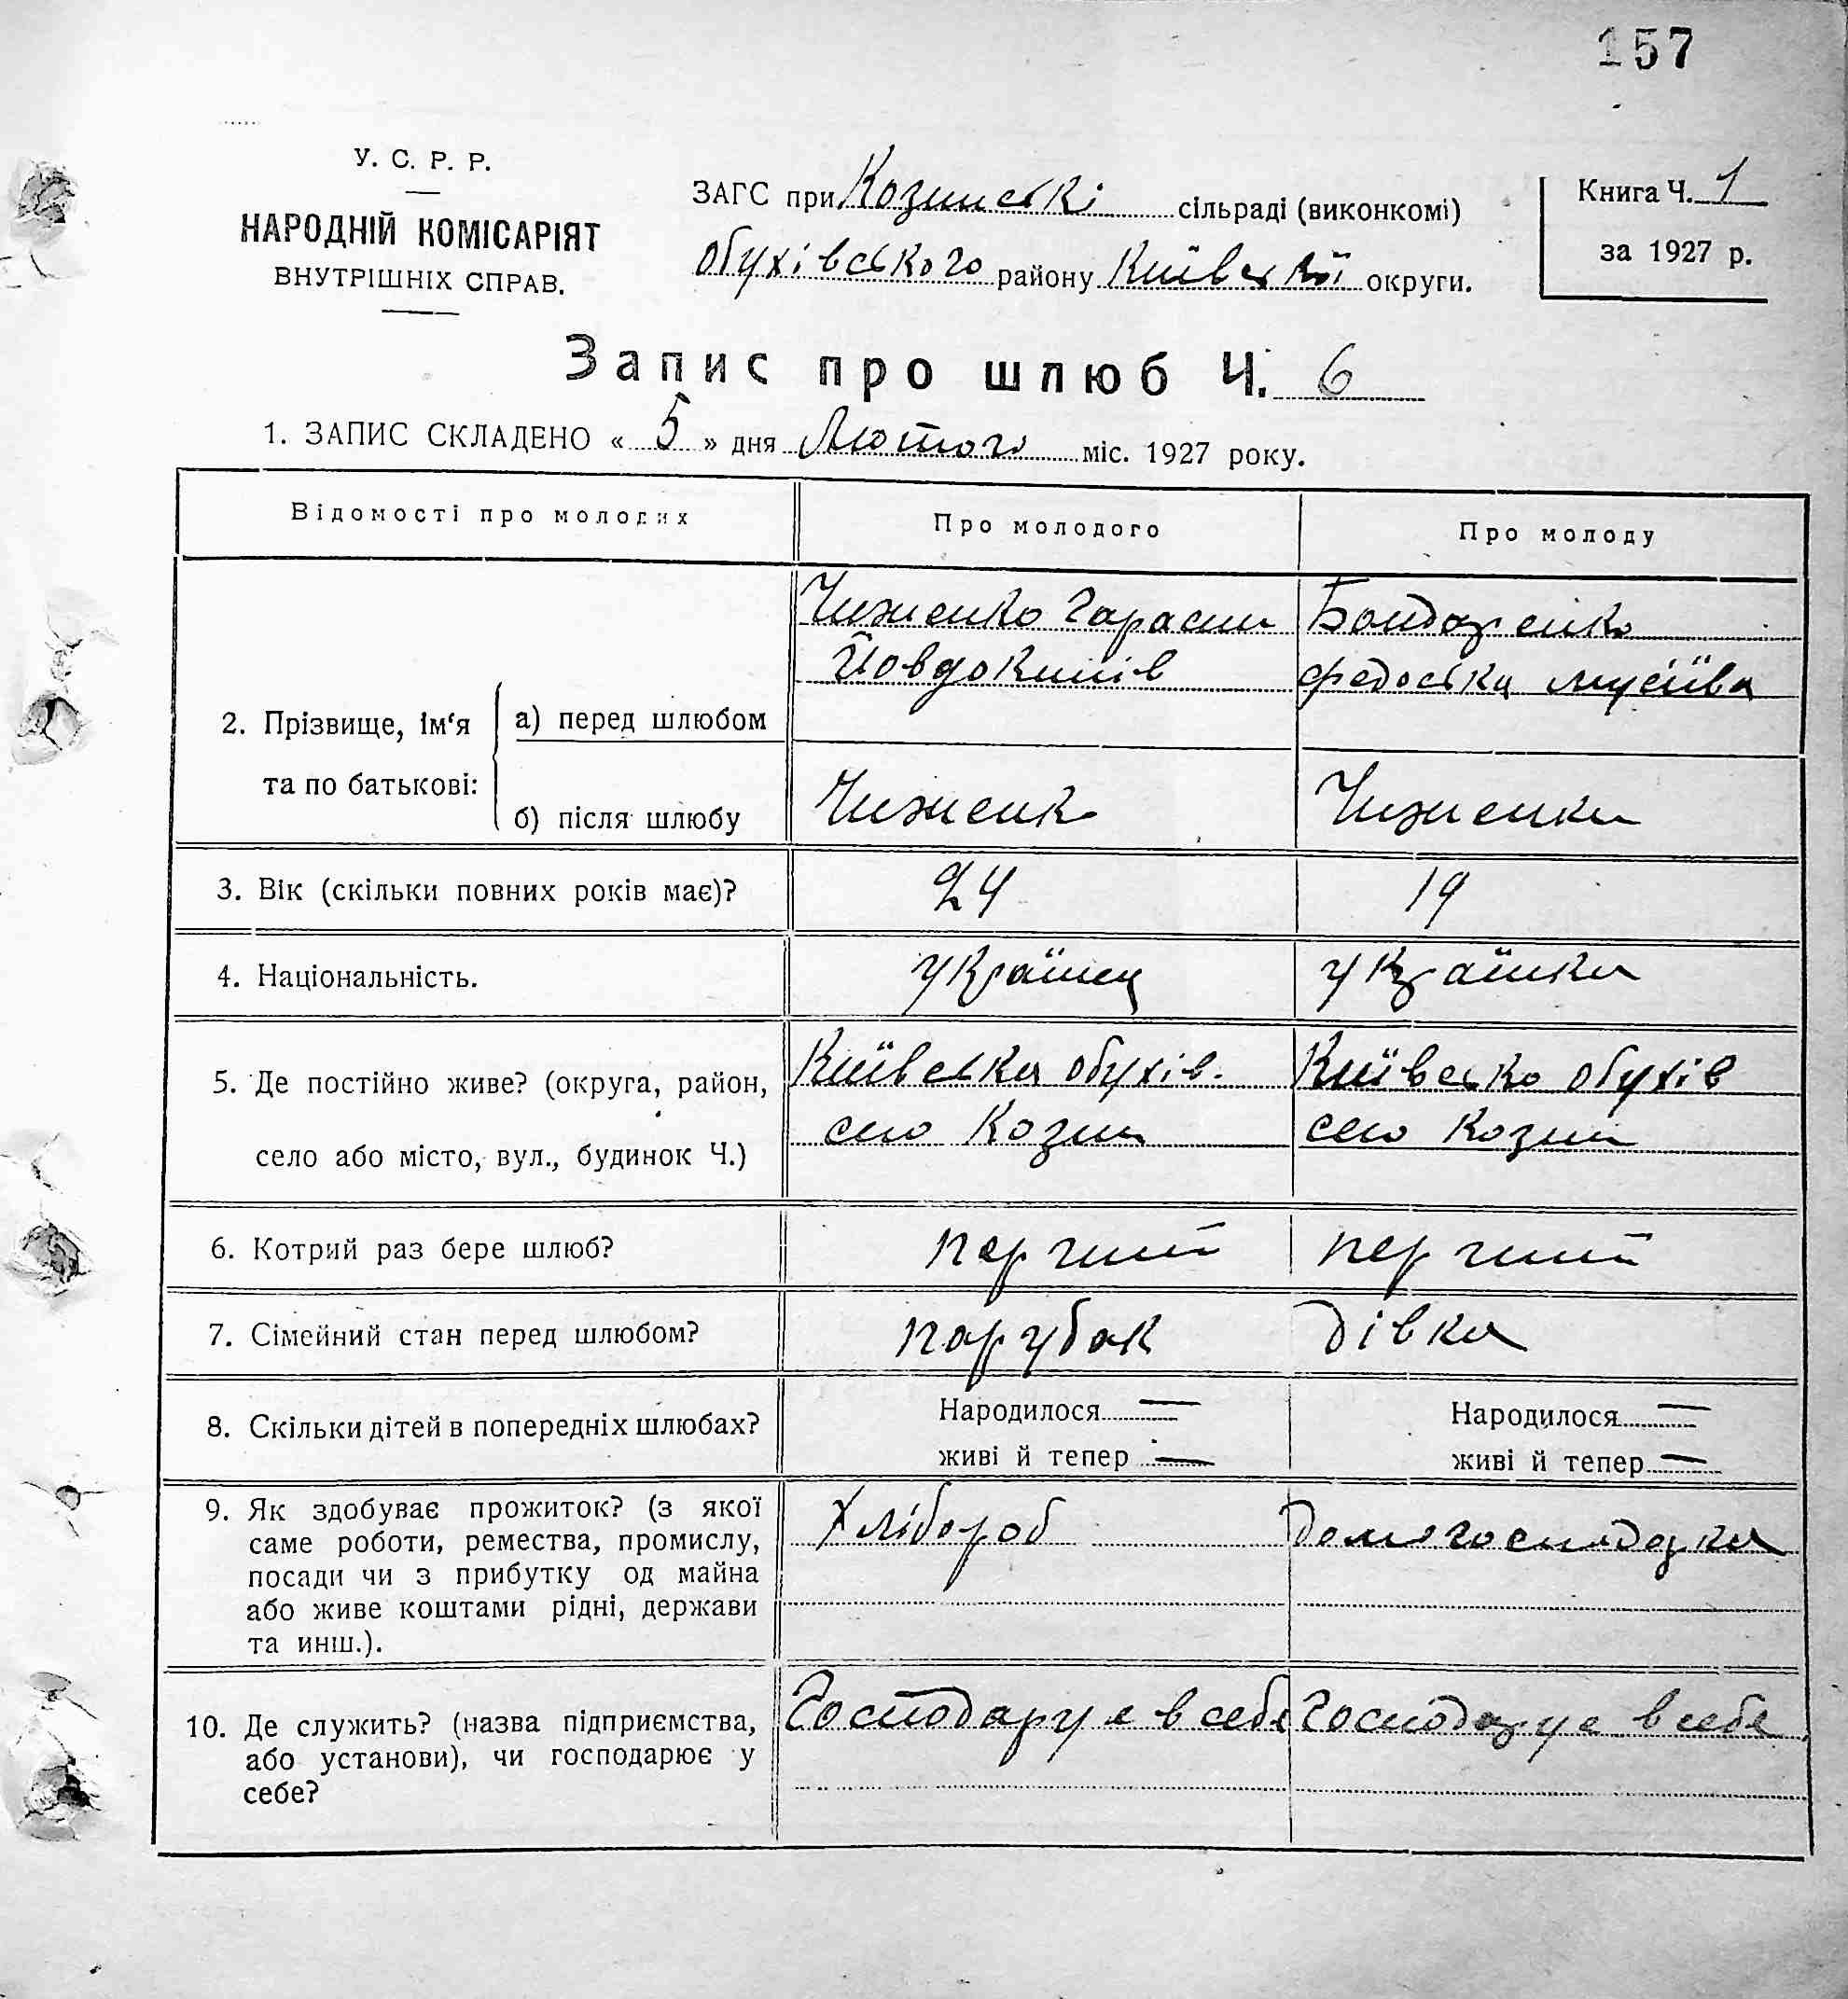 157
У. С. Р. Р.
НАРОДНІЙ КОМІСАРІЯТ
ВНУТРІШНІХ СПРАВ.
ЗАГС при Козинські сільраді (виконкомі)
Обухівського району Київської округи.
Книга Ч. 1
за 1927 р.
Запис про шлюб Ч. 6
1. ЗАПИС СКЛАДЕНО « 5 » дня Лютого міс. 1927 року.
Відомості про молодих Про молодого Про молоду
2. Прізвище, ім'я та по батькові:
а) перед шлюбом
Чиженко Гарасим
Йовдокимів
Бондаренко
Федоська Мусіїва
б) після шлюбу Чиженко Чиженко
3. Вік (скільки повних років має)? 24 19
4. Національність. українец українка
5. Де постійно живе? (округа, район,
село або місто, вул., будинок Ч.)
Київська Обухів.
село Козин
Київсько Обухів
село Козин
6. Котрий раз бере шлюб? перший перший
7. Сімейний стан перед шлюбом? парубок дівка
8. Скільки дітей в попередніх шлюбах?
Народилося —
живі й тепер —
Народилося —
живі й тепер —
9. Як здобуває прожиток? (з якої
саме роботи, ремества, промислу,
посади чи з прибутку од майна
або живе коштами рідні, держави
та инш.).
Хлібороб
Домогосподарка
10. Де служить? (назва підприємства,
або установи), чи господарює у
себе?
Господарує в себе
Господарує в себе